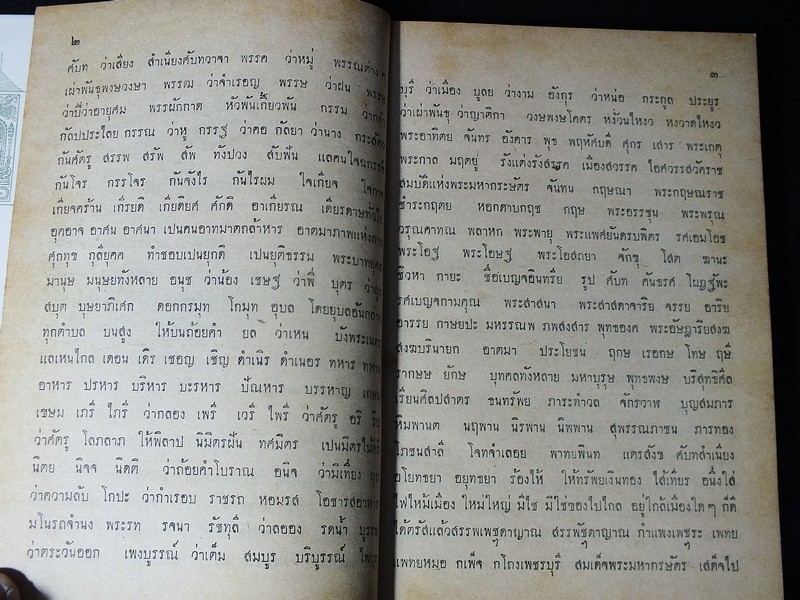 ๒
ศับท ว่าเสียง สำเนียงศับทวาจา พรรค ว่าหมู่ พรรณต่าง ๆ
เผ่าพันธุพงษวงษา พรรฒ ว่าจำเรอญ พรรษ ว่าฝน พรรษ
ว่าปีว่าอายุศม พรรผักกาด หัวพันเกี้ยวพัน กรรม ว่ากทำ
กัลปประไลย กรรณ ว่าหู กรรฐ ว่าคอ กัลยา ว่านาง กระสัตว
กันศัตรู สรรพ สรัพ สัพ ทังปวง สับฟัน แลคนใจฉกรรจ์
กันโจร กรรโจร กันจังไร กันไรผม ใจเกียจ ใจกาจ
เกียจคร้าน เกียรยดิ เกียดิยศ ศักดิ อาเกียรณ เดียรดาษทั่วไป
อุดอาจ อาศน อาศนา เปนคนอาทมาตกล้าหาร อาตมาภาพแห่ง
ศุกทุข กุลียุคค ทำชอบเปนยุกติ เปนยุติธรรม พระบาทยุคล
มานุษ มนุษยทังหลาย อนุช ว่าน้อง เชษฐ ว่าพี่ บุตร ว่าลูก
สบุต บุษยาภิเศก ดอกกรมุท โกมุท อุบล โดยยุบลอันกล่าว
ทุกตำบล บนสูง ให้บนถ้อยคำ ยล ว่าเหน บังพระเนตร
แลเหนไกล เดอน เดิร เชอญ เชิญ ดำเนิร ดำเนอร ทหาร ทหาร
อาหาร ปรหาร บริหาร บะรหาร ปัณหาร บรรหาญ เกษม
เขษม เภรี ไภรี ว่ากลอง เพรี เวรี ไพรี ว่าศัตรู อริ ริปู
ว่าศัตรู โลภลาภ ให้พิลาป นิมิตรฝัน ทศมิตร เปนมิตรไมตรี
นิตย นิจจ นิตติ ว่าถ้อยคำโบราณ อนิจ ว่ามิเที่ยง
ว่าความลับ โกปะ ว่ากำเรอบ ราชรถ หอมรส โอชารสอาหาร
มโนรถจำนง พระรท รจนา รัชทุลี ว่าลออง รดน้ำ บูรพ
ว่าตระวันออก เพงบูรรณ์ ว่าเต็ม สมบูร บริบูรรณ์ ไพบูรณ์
๓
บุรี ว่าเมือง บูลย ว่างาม อังกุร ว่าหน่อ ตระกูล ประยูร
ว่าเผ่าพันธุ ว่าญาติกา วงษพงษโคตร หง้วนไหงว หงวาดไหงว
พระอาทิตย จันทร อังคาร พุธ พฤหัศบดี ศุกร เสาร พระเกตุ
พระกาล มฤตยู รังแต่งรังสรรค เมืองสวรรค ไอศวรรสวัคราช
สมบัติแห่งพระมหากระษัตร จันทน กฤษณา พระกฤษณราช
ชำระกฤตย หอกดาบกฤช กฤษ พระอรรชุน พระพรุณ
วรุณคาทณ พลาหก พระพาย พระแพศยันดรบพิตร รศเอมโอช
พระโอฐ พระโอษฐ พระโอสถยา จักขุ โสต ฆานะ
ชิวหา กายะ ชื่อเบญจอินทรีย รูป ศับท คันธรศ โผฏฐัพะ
รศเบญจกามคุณ พระสาสนา พระสาสดาจาริย จรรย อาริย
อารรย กาษยปะ มหรรณพ ภพสงสาร พุทธองค พระอัษฎาริยสงฆ
สงฆบรินายก อาตมา ประโยชน ฤกษ เรอกษ โทษ ฤษี
รากษษ ยักษ บุทคลทังหลาย มหาบุรุษ พุทธพงษ บริสุทธิศีล
เรียนศิลปสาตร ธนทรัพย ภาระทำวล จักรวาฬ บุญสมภาร
หิมพานต นฤพาน นิรพาน นิพพาน สุพรรณภาชน ภารทอง
โภชนสาลี โจทจำเลอย พาทยพินท แตรสังข ศับทสำเนียง
อโยทธยา อยุทธยา ร้องไห้ ให้ทรัพยเงินทอง ใส้เทียร อนึ่งใส่
ไฟไหม้เมือง ใหม่ใหญ่ มิใช่ มิใช่ของไปไกล อยู่ใกล้เมืองใด ๆ ก็ดี
ได้ตรัสแล้วสรรพเพชุดาญาณ สรรพัชุดาญาณ กำแพงเพชระ เพทย
แพทยหมอ กเพ็จ กโกงเพชรบุรี สมเด็จพระมหากรษัตร เสด็จไป